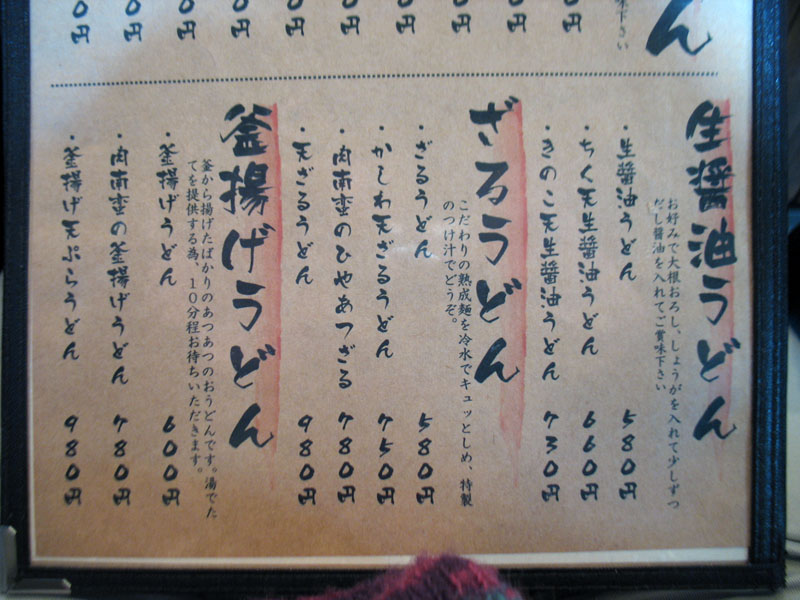 0円
0円
0円
0円
0円
0円
0円
0円
0円
0円
ん
味下さい
生醤油うどん
お好みで大根おろし、しょうがを入れて少しずつ
だし醤油を入れてご賞味下さい
・生醤油うどん 580円
・ちく天生醤油うどん 660円
・きのこ天生醤油うどん 730円
ざるうどん
こだわりの熟成麺を冷水でキュッとしめ、特製
のつけ汁でどうぞ。
・ざるうどん 580円
・かしわ天ざるうどん 750円
・肉南蛮のひやあつざる 780円
・天ざるうどん 980円
釜揚げうどん
釜から揚げたばかりのあつあつのおうどんです。湯でた
てを提供する為、10分程お待ちいただきます。
・釜揚げうどん 600円
・肉南蛮の釜揚げうどん 780円
・釜揚げ天ぷらうどん 980円